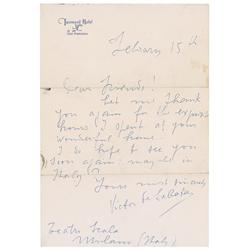 Fairmont Hotel
San Francisco
February 15th
Dear Friends!
Let me thank
you again for the
hours I spent at your
wonderful home.
I hope to see you
soon again: maybe in
Italy?
Yours most sincerely
Victor de Sabata
Teatro Scala
Milano (Italy)